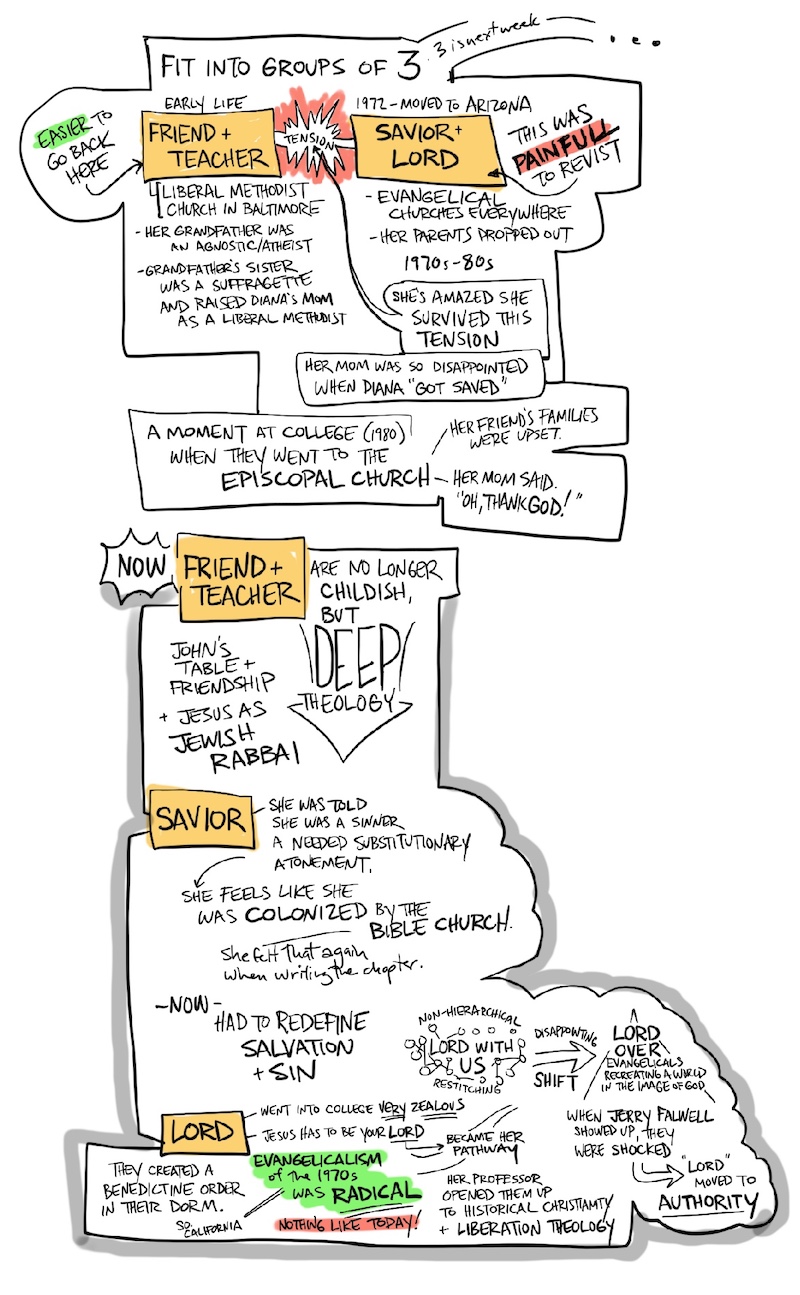 FIT INTO GROUPS OF 3
3 is next week
EARLY LIFE
FRIEND +
TEACHER
EASIER TO
GO BACK
HERE
LIBERAL METHODIST
CHURCH IN BALTIMORE
- HER GRANDFATHER WAS
AN AGNOSTIC/ATHEIST
- GRANDFATHER'S SISTER
WAS A SUFFRAGETTE
AND RAISED DIANA'S MOM
AS A LIBERAL METHODIST
TENSION
1972 - MOVED TO ARIZONA
SAVIOR +
LORD
THIS WAS
PAINFULL
TO REVIST
- EVANGELICAL
CHURCHES EVERYWHERE
- HER PARENTS DROPPED OUT
1970s-80s
SHE'S AMAZED SHE
SURVIVED THIS
TENSION
HER MOM WAS SO DISAPPOINTED
WHEN DIANA "GOT SAVED"
A MOMENT AT COLLEGE (1980)
WHEN THEY WENT TO THE
EPISCOPAL CHURCH
HER FRIEND'S FAMILIES
WERE UPSET.
HER MOM SAID.
"OH, THANK GOD!"
NOW
FRIEND +
TEACHER
ARE NO LONGER
CHILDISH,
BUT
DEEP
THEOLOGY
JOHN'S
TABLE +
FRIENDSHIP
+ JESUS AS
JEWISH
RABBAI
SAVIOR
SHE WAS TOLD
SHE WAS A SINNER
A NEEDED SUBSTITUTIONARY
ATONEMENT.
SHE FEELS LIKE SHE
WAS COLONIZED BY THE
BIBLE CHURCH.
She felt that again
when writing the chapter.
- NOW -
HAD TO REDEFINE
SALVATION
+ SIN
NON-HIERARCHICAL
LORD WITH
US
RESTITCHING
DISAPPOINTING
SHIFT
LORD
OVER
EVANGELICALS
RECREATING A WORLD
IN THE IMAGE OF GOD
WHEN JERRY FALWELL
SHOWED UP, THEY
WERE SHOCKED
"LORD"
MOVED TO
AUTHORITY
LORD
WENT INTO COLLEGE VERY ZEALOUS
JESUS HAS TO BE YOUR LORD
BECAME HER
PATHWAY
THEY CREATED A
BENEDICTINE ORDER
IN THEIR DORM.
SO.
CALIFORNIA
EVANGELICALISM
of the 1970s
WAS RADICAL
NOTHING LIKE TODAY!
HER PROFESSOR
OPENED THEM UP
TO HISTORICAL CHRISTIANITY
+ LIBERATION THEOLOGY